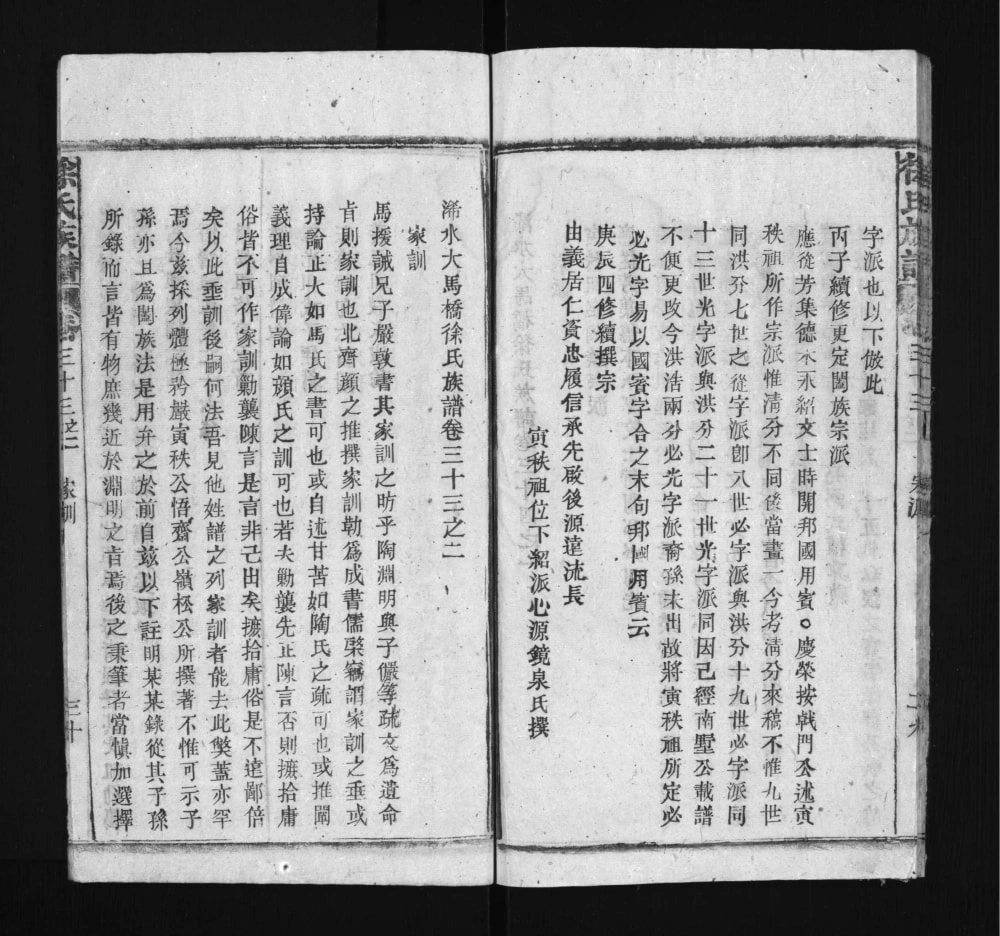 字派也以下倣此
丙子續修更定闔族宗派
應從芳集德永承紹文士時開邦國用賓。慶榮按戟門公述寅
秩祖所作宗派惟清分不同後當畫一今考清分來稿不惟九世
同洪分七世之從字派卽八世必字派與洪分十九世必字派同
十三世光字派與洪分二十一世光字派同因已經南墅公載譜
不便更改今洪浩兩分必光字派裔孫未出故將寅秩祖所定必
必光字易以國賓字合之末句邦國用賓云
庚辰四修續撰宗
由義居仁資忠履信承先啟後源遠流長
寅秩祖位下紹派心源鏡泉氏撰
徐氏族譜
浠水大馬橋徐氏族譜卷三十三之二
家訓
馬援誡兄子嚴敦書其家訓之昉乎陶淵明與子儼等疏文爲遺命
肯則家訓也北齊顏之推撰家訓勒爲成書儒檠竊謂家訓之垂或
持論正大如馬氏之書可也或自述甘苦如陶氏之疏可也或推闡
義理自成偉論如顏氏之訓可也若夫勦襲先正陳言否則摭拾庸
俗皆不可作家訓勦襲陳言是言非己出矣摭拾庸俗是不遠鄙倍
矣以此垂訓後嗣何法吾見他姓譜之列家訓者能去此獘蓋亦罕
焉今茲採列體極矜嚴寅秩公悟齋公嶺松公所撰著不惟可示子
孫亦且爲闔族法是用弁之於前自茲以下註明某某錄從其子孫
所錄而言皆有物庶幾近於淵明之肯焉後之秉筆者當愼加選擇
徐氏族譜 三十三之二 家訓 三十